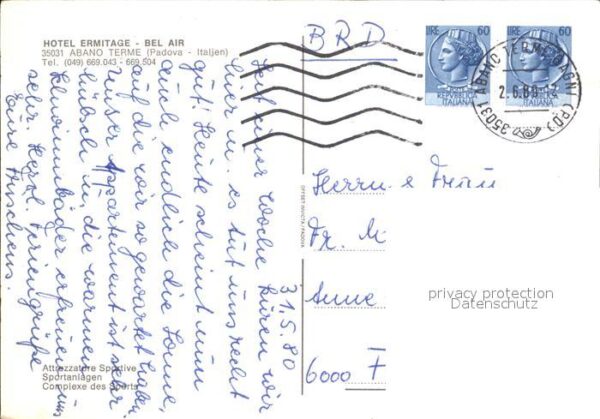 HOTEL ERMITAGE - BEL AIR
35031 ABANO TERME (Padova - Italien)
Tel. (049) 669.043 - 669.504
31.5.80
Seit einer Woche kuren wir
hier u. es tut uns recht
gut! Heute scheint nun
auch endlich die Sonne,
auf die wir so gewartet haben.
Unser Appartement ist sehr
hübsch u. die warmen
Schwimmbäder erfreuen uns
sehr. Herzl. Feriengrüße
Eure
Attrezzature Sportive
Sportanlagen
Complexe des Sports
OFFSET INVICTA - PADOVA
BRD
LIRE 60
REPVBBLICA
ITALIANA
LIRE 60
ITALIANA
35031 ABANO TERME BAGNI (PD)
2.6.80
Herrn & Frau
Dr. M
Anne
6000 F
privacy protection
Datenschutz